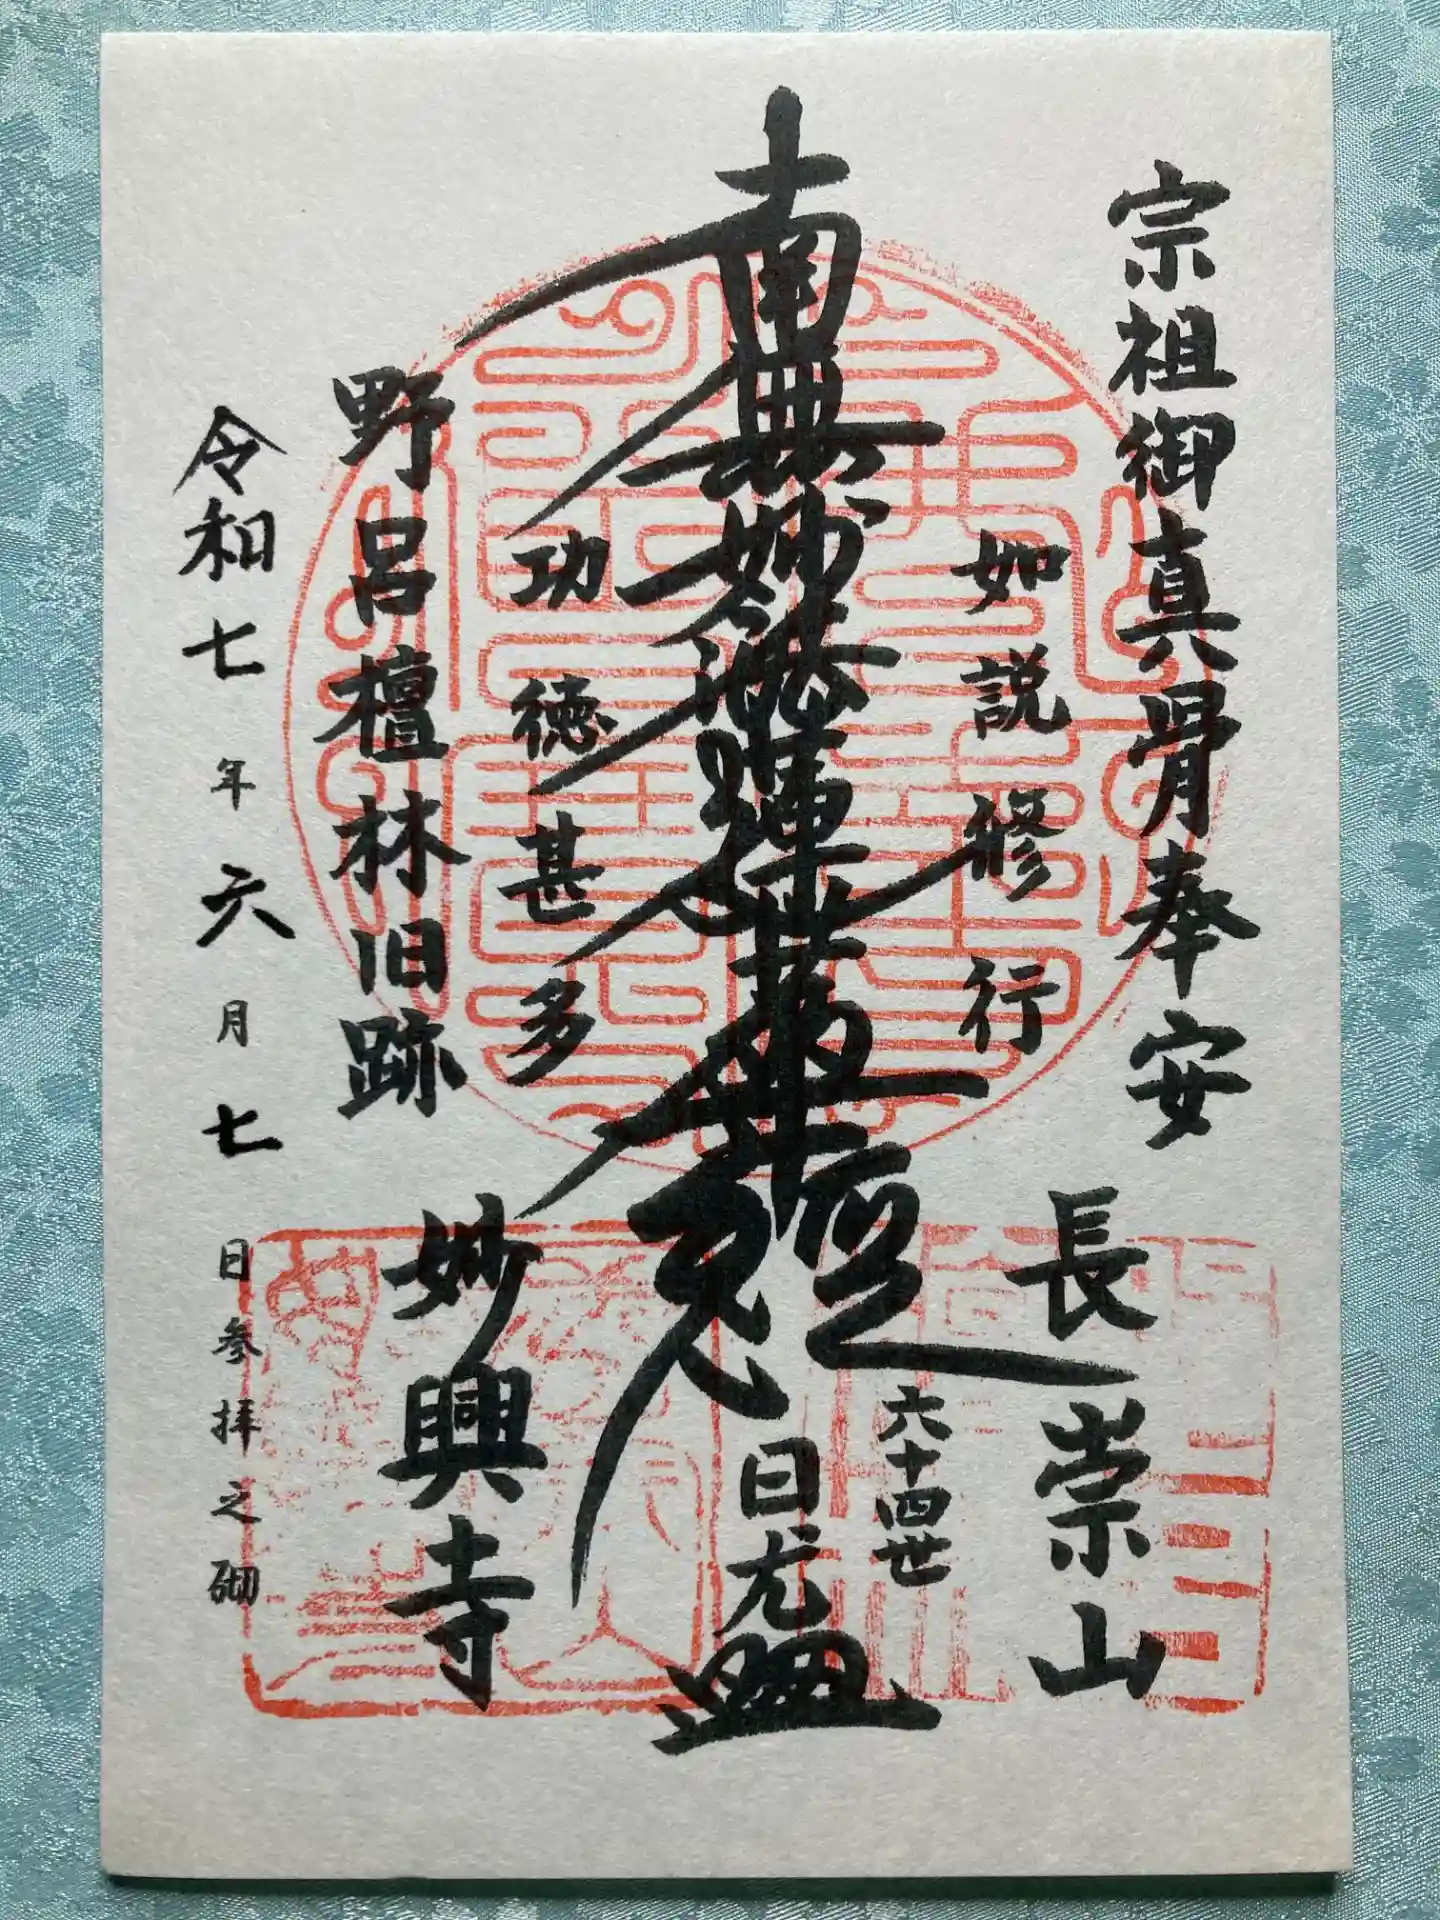 宗祖御真骨奉安
長崇山
如説修行
六十四世
南無妙法蓮華経
日尤
功徳甚多
野呂檀林旧跡
妙興寺
令和七年六月七日参拝之砌